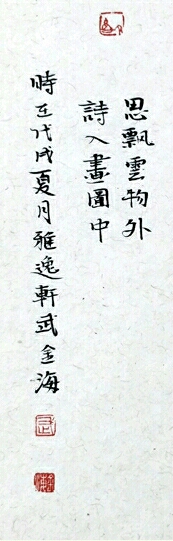 思飄雲物外
詩入畫圖中
時在戊戌夏月雅逸軒武金海